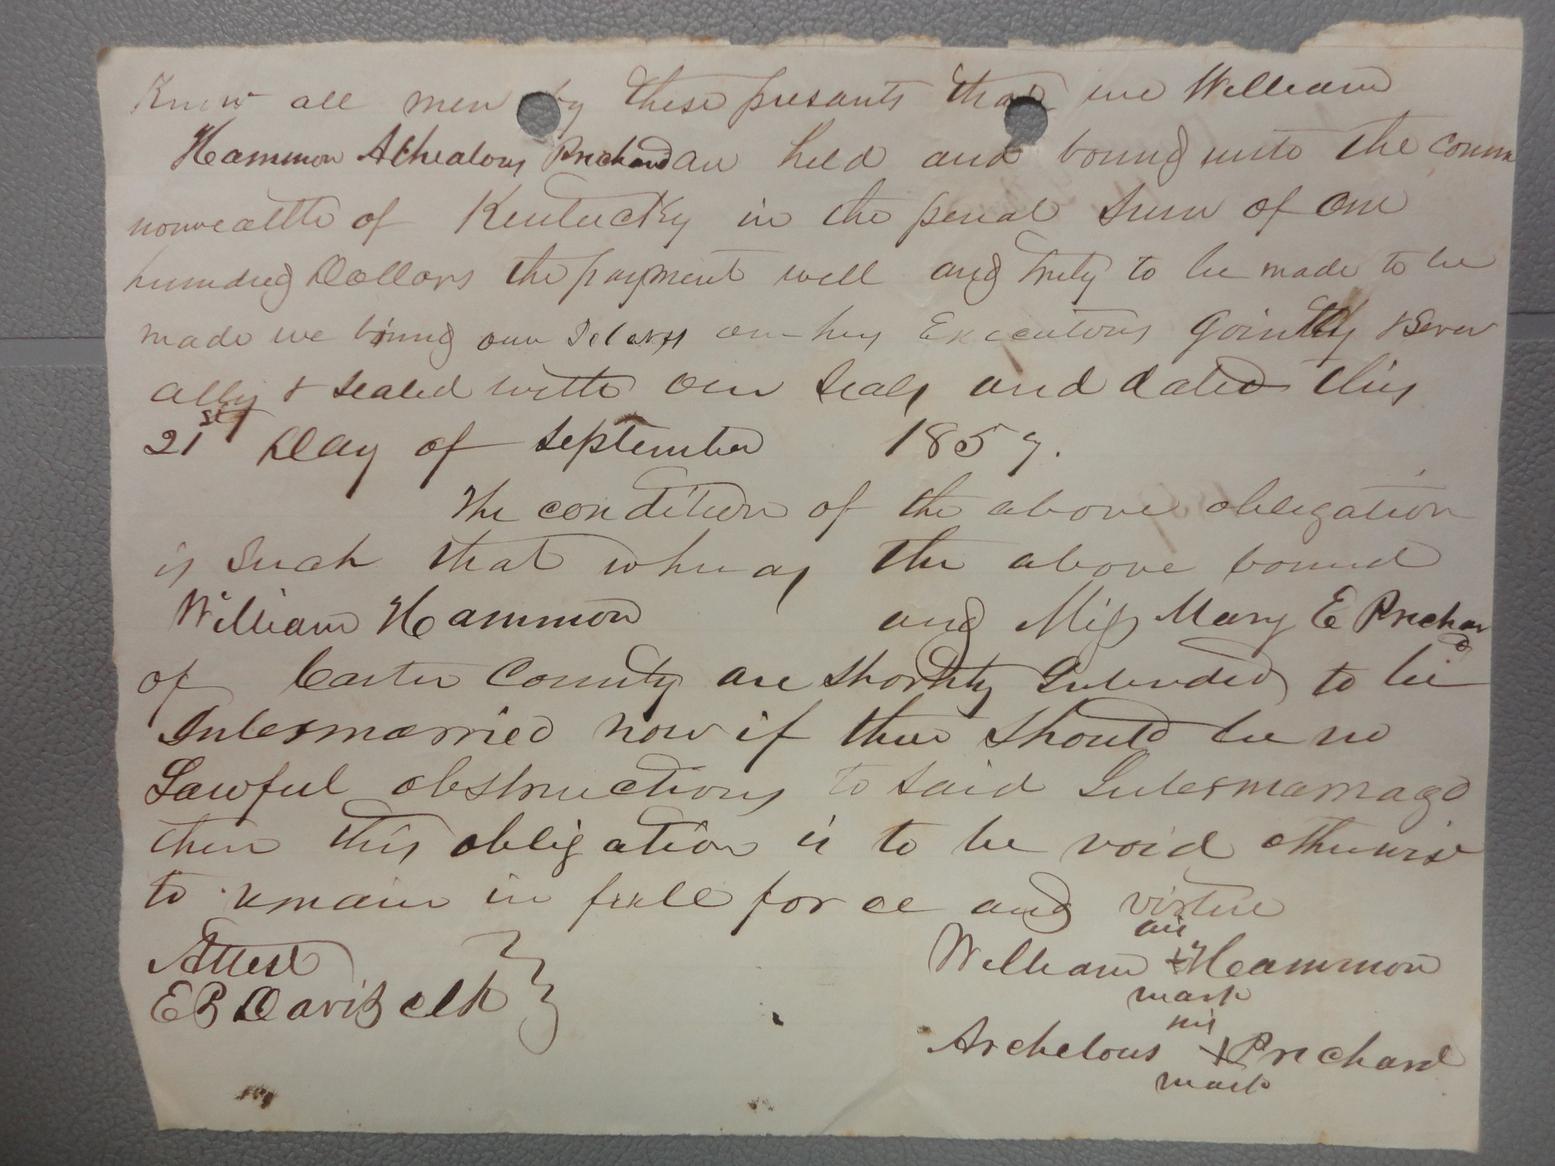 Know all men by these presants that we William
Hammon Achealous Prichard are held and boung unto the comm
nonwealth of Kentucky in the penal Sum of one
hundreg Dollars the payment well and truly to be made to be
made we binng our Selevs our hey Executors Gointly & Sever
ally & Sealed with our Seals and dated this
21st Day of September 1857.
The condition of the above obligation
is Such that whereas the above bound
William Hammon and Miss Mary E Prichard
of Carter County are Shortly Intended to be
Intermarried now if there Should be no
Lawful obstructions to Said Intermarriage
then this obligation is to be void otherwise
to remain in full force and virtue
Attest
E B Davis clk
his
William + Hammon
mark
his
Archelous + Prichard
mark